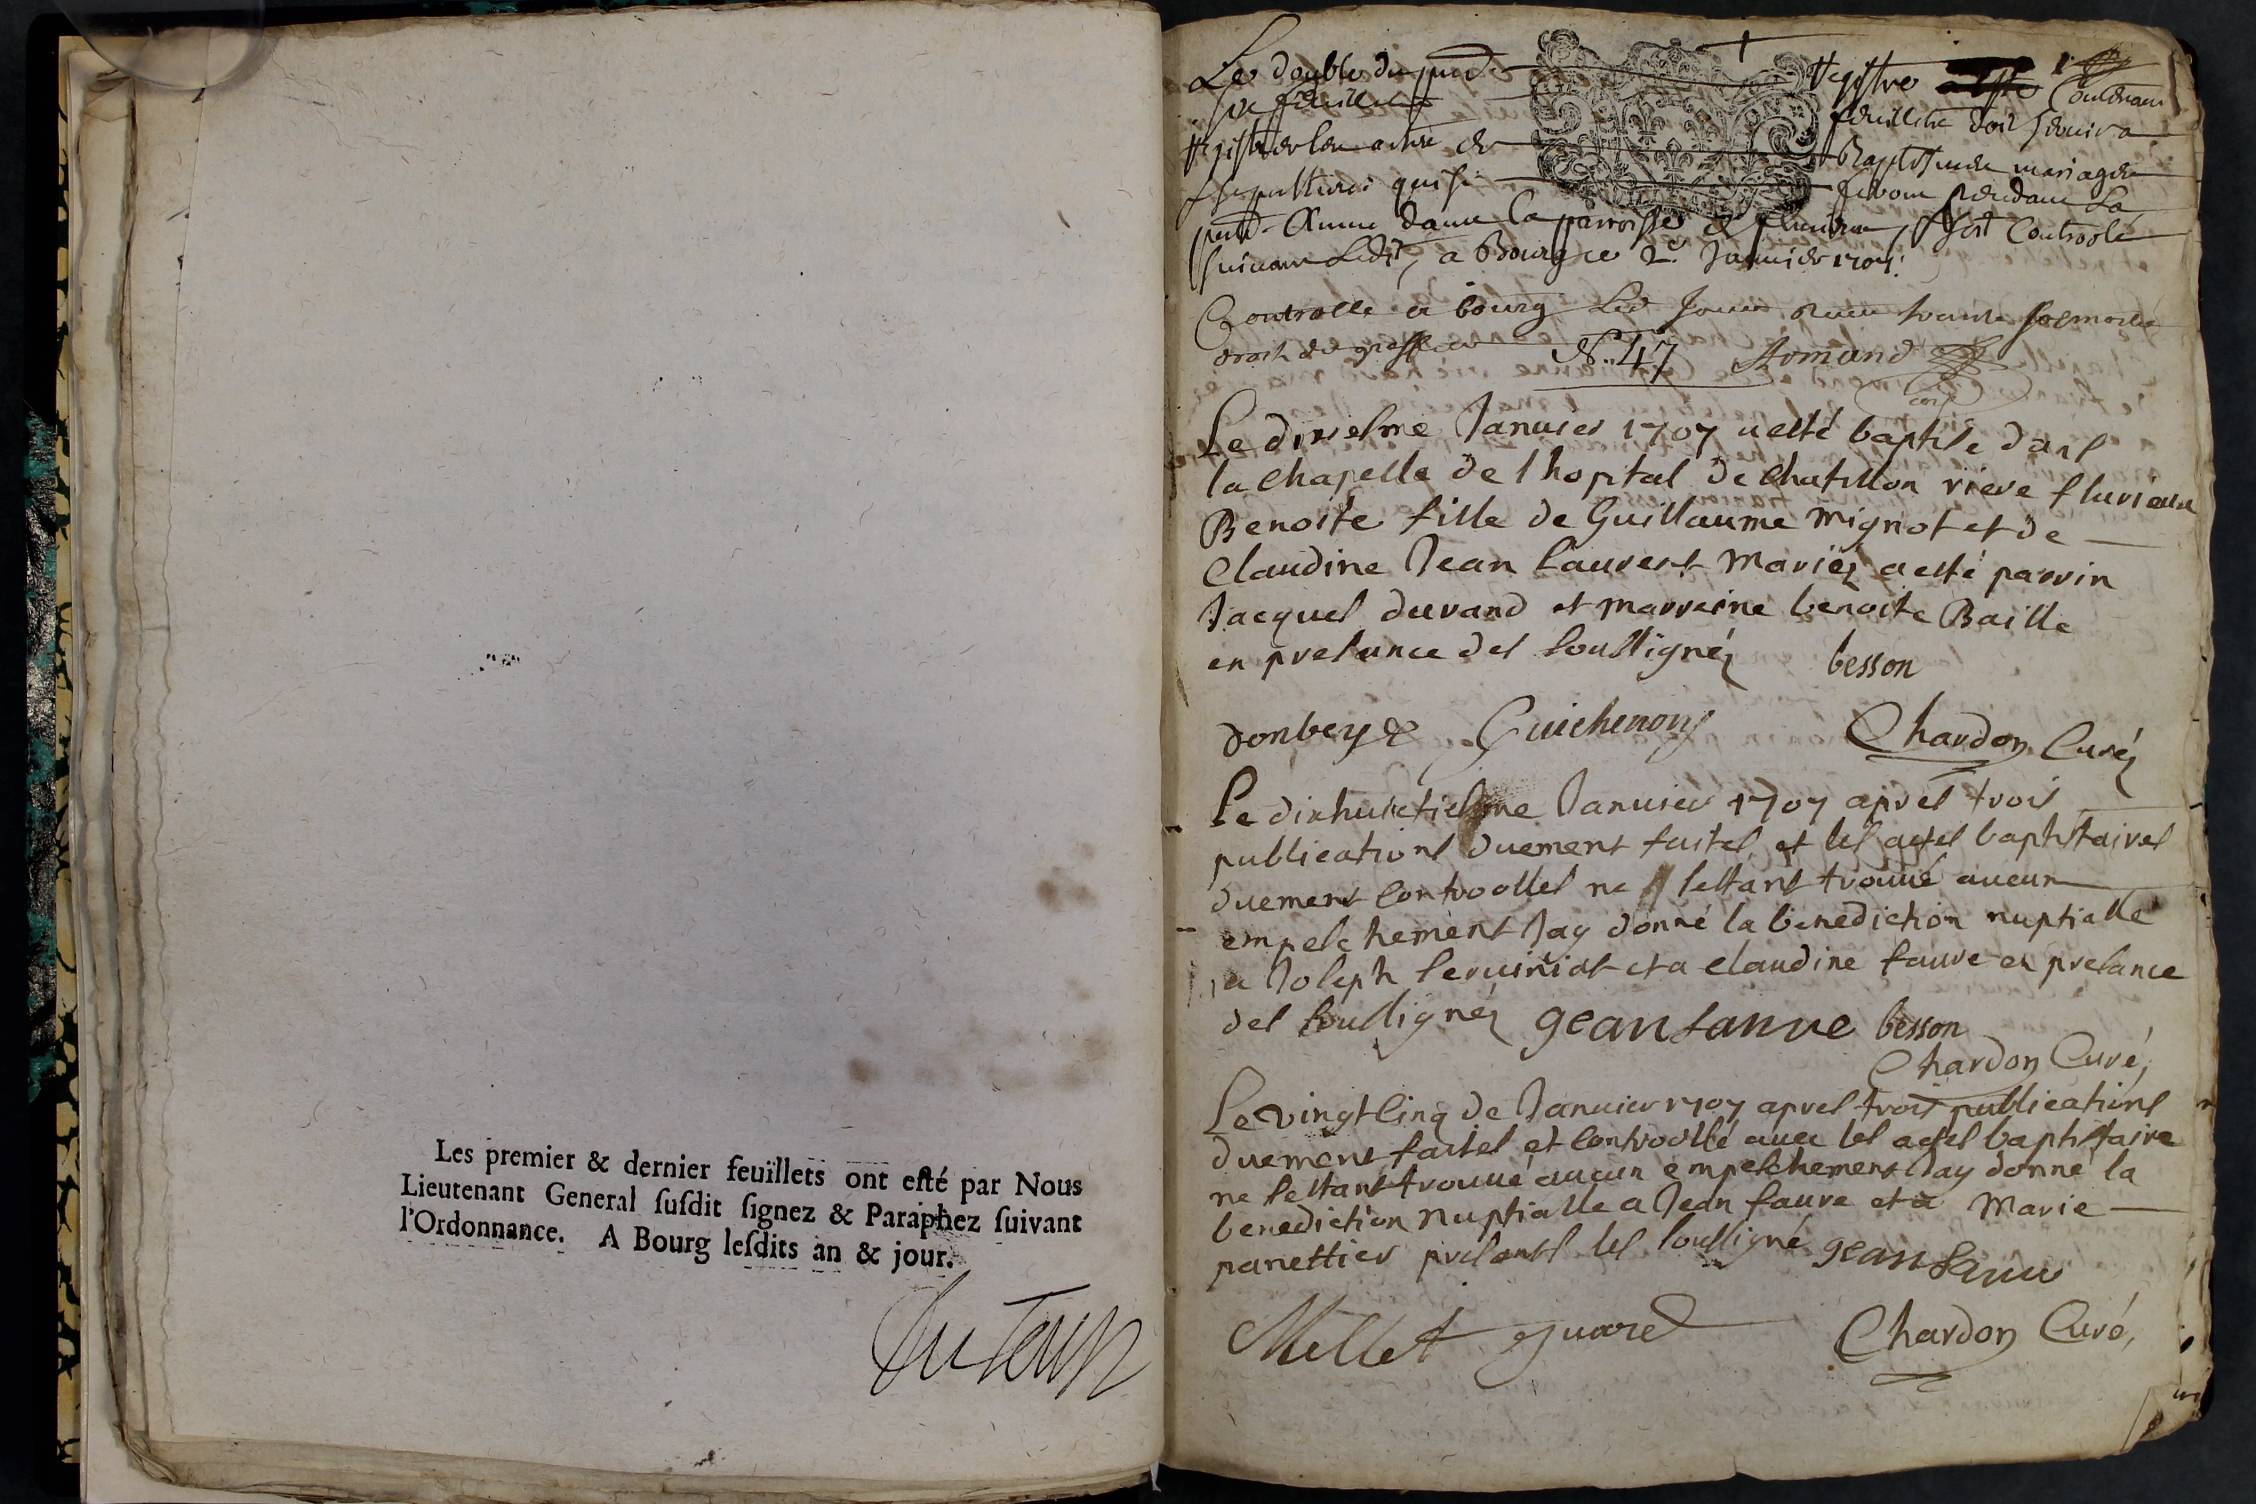 Les premier & dernier feuillets ont esté par Nous
Lieutenant General susdit signez & Paraphez suivant
l'Ordonnance. A Bourg lesdits an & jour.
Le double du registre
six feuillets feuillets doit servira
registrer les actes de Baptesmes mariages
sepultures qui se feront pendant la
Année dans la parroisse de et controolé
suivant a Bourg ce 2e Januier 1707.
Controlle a bourg
droit de greffe No 47 Armand
Le dixiesme Januier 1707 a esté baptise dans
la chapelle de l hopital de chatillon riere fluvieux
Benoite fille de Guillaume mignot et de
Claudine Jean laurent mariéz a esté parrin
Jacques durand et marreine benoite Baille
en presance des soussignéz besson
donbey Guichenon Chardon Curé
Le dixhuictiesme Januier 1707 apres trois
publications duement faites et les actes baptistaires
duement controolles ne sestant trouué aucun
empeschement Jay donné la benediction nuptialle
a Joseph et a claudine faure en presance
des soussignéz gean faure besson
Chardon Curé
Le vingt cinq de Januier 1707 apres trois publications
duement faites et controollé auec les actes baptistaire
ne sestant trouué aucun empeschement Jay donné la
benediction nuptialle a Jean faure et a Marie
panettier presents les soussigné gean faure
Millet Chardon Curé